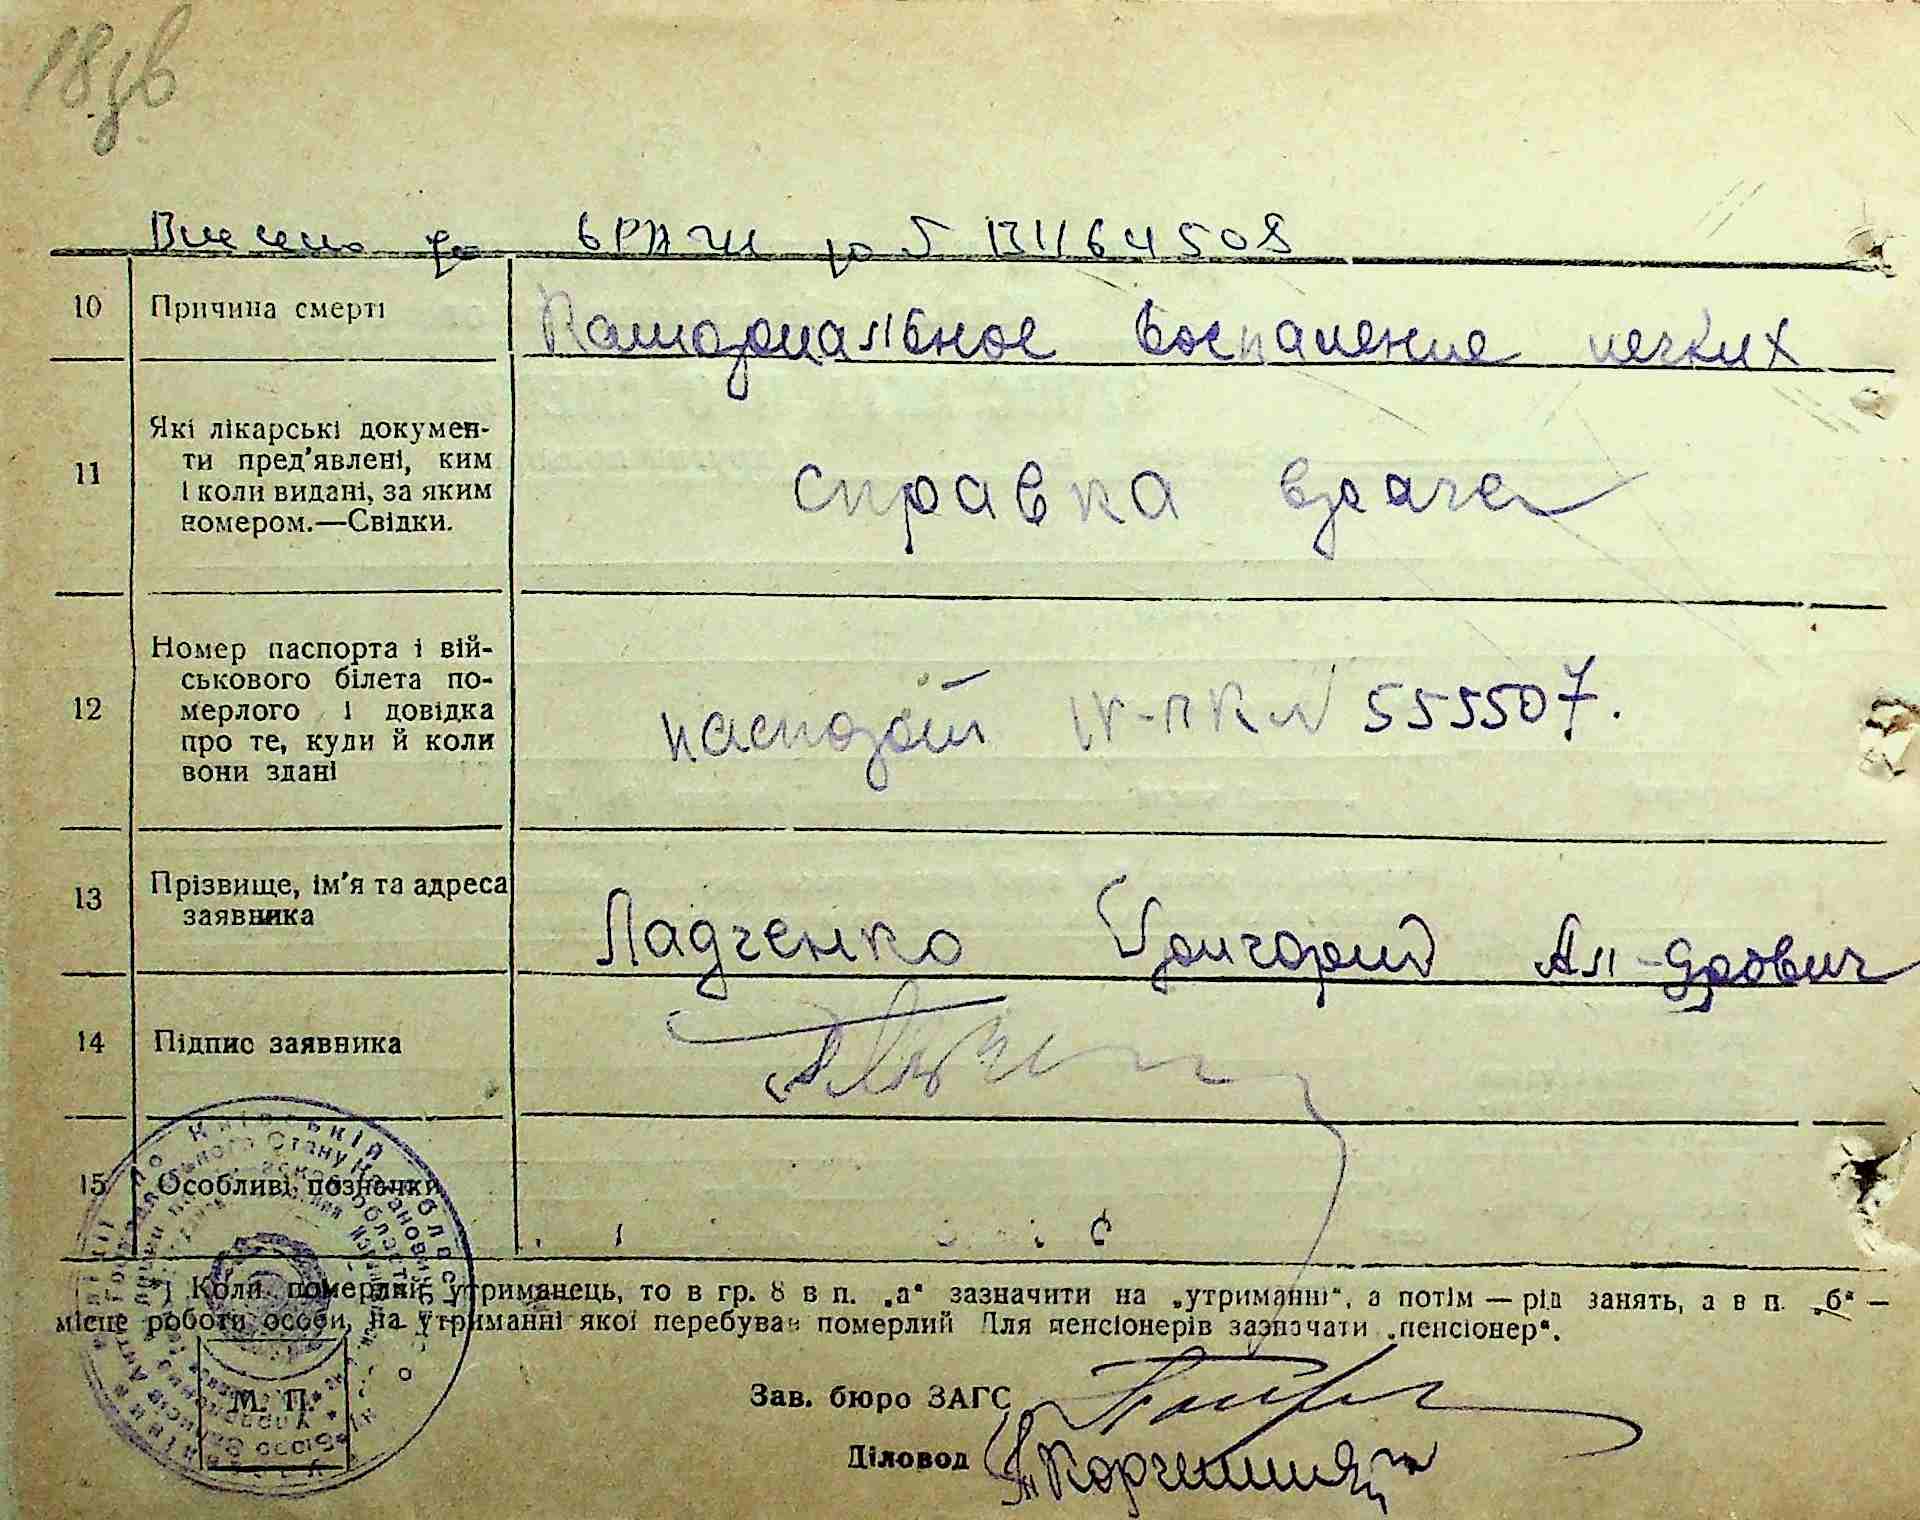 18 зв
Внесено до
10 Причина смерті
воспаление легких
11 Які лікарські докумен-
ти пред'явлені, ким
і коли видані, за яким
номером.—Свідки.
справка врача
12 Номер паспорта і вій-
ськового білета по-
мерлого і довідка
про те, куди й коли
вони здані
паспорт IV-ПК № 555507.
13 Прізвище, ім'я та адреса
заявника
Ладченко Григорий Ал-дрович
14 Підпис заявника
15 Особливі позначки
*) Коли померлий утриманець, то в гр. 8 в п. „а“ зазначити на „утриманні“, а потім — рід занять, а в п. „б“ —
місце роботи особи, на утриманні якої перебував померлий Для пенсіонерів зазначати „пенсіонер“.
М. П.
Зав. бюро ЗАГС
Діловод